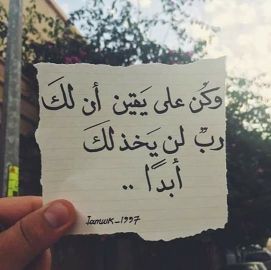 وكُن على يَقين أن لكَ
ربٌ لن يَخذلكَ
أبدًا ..
Iamuk_1997